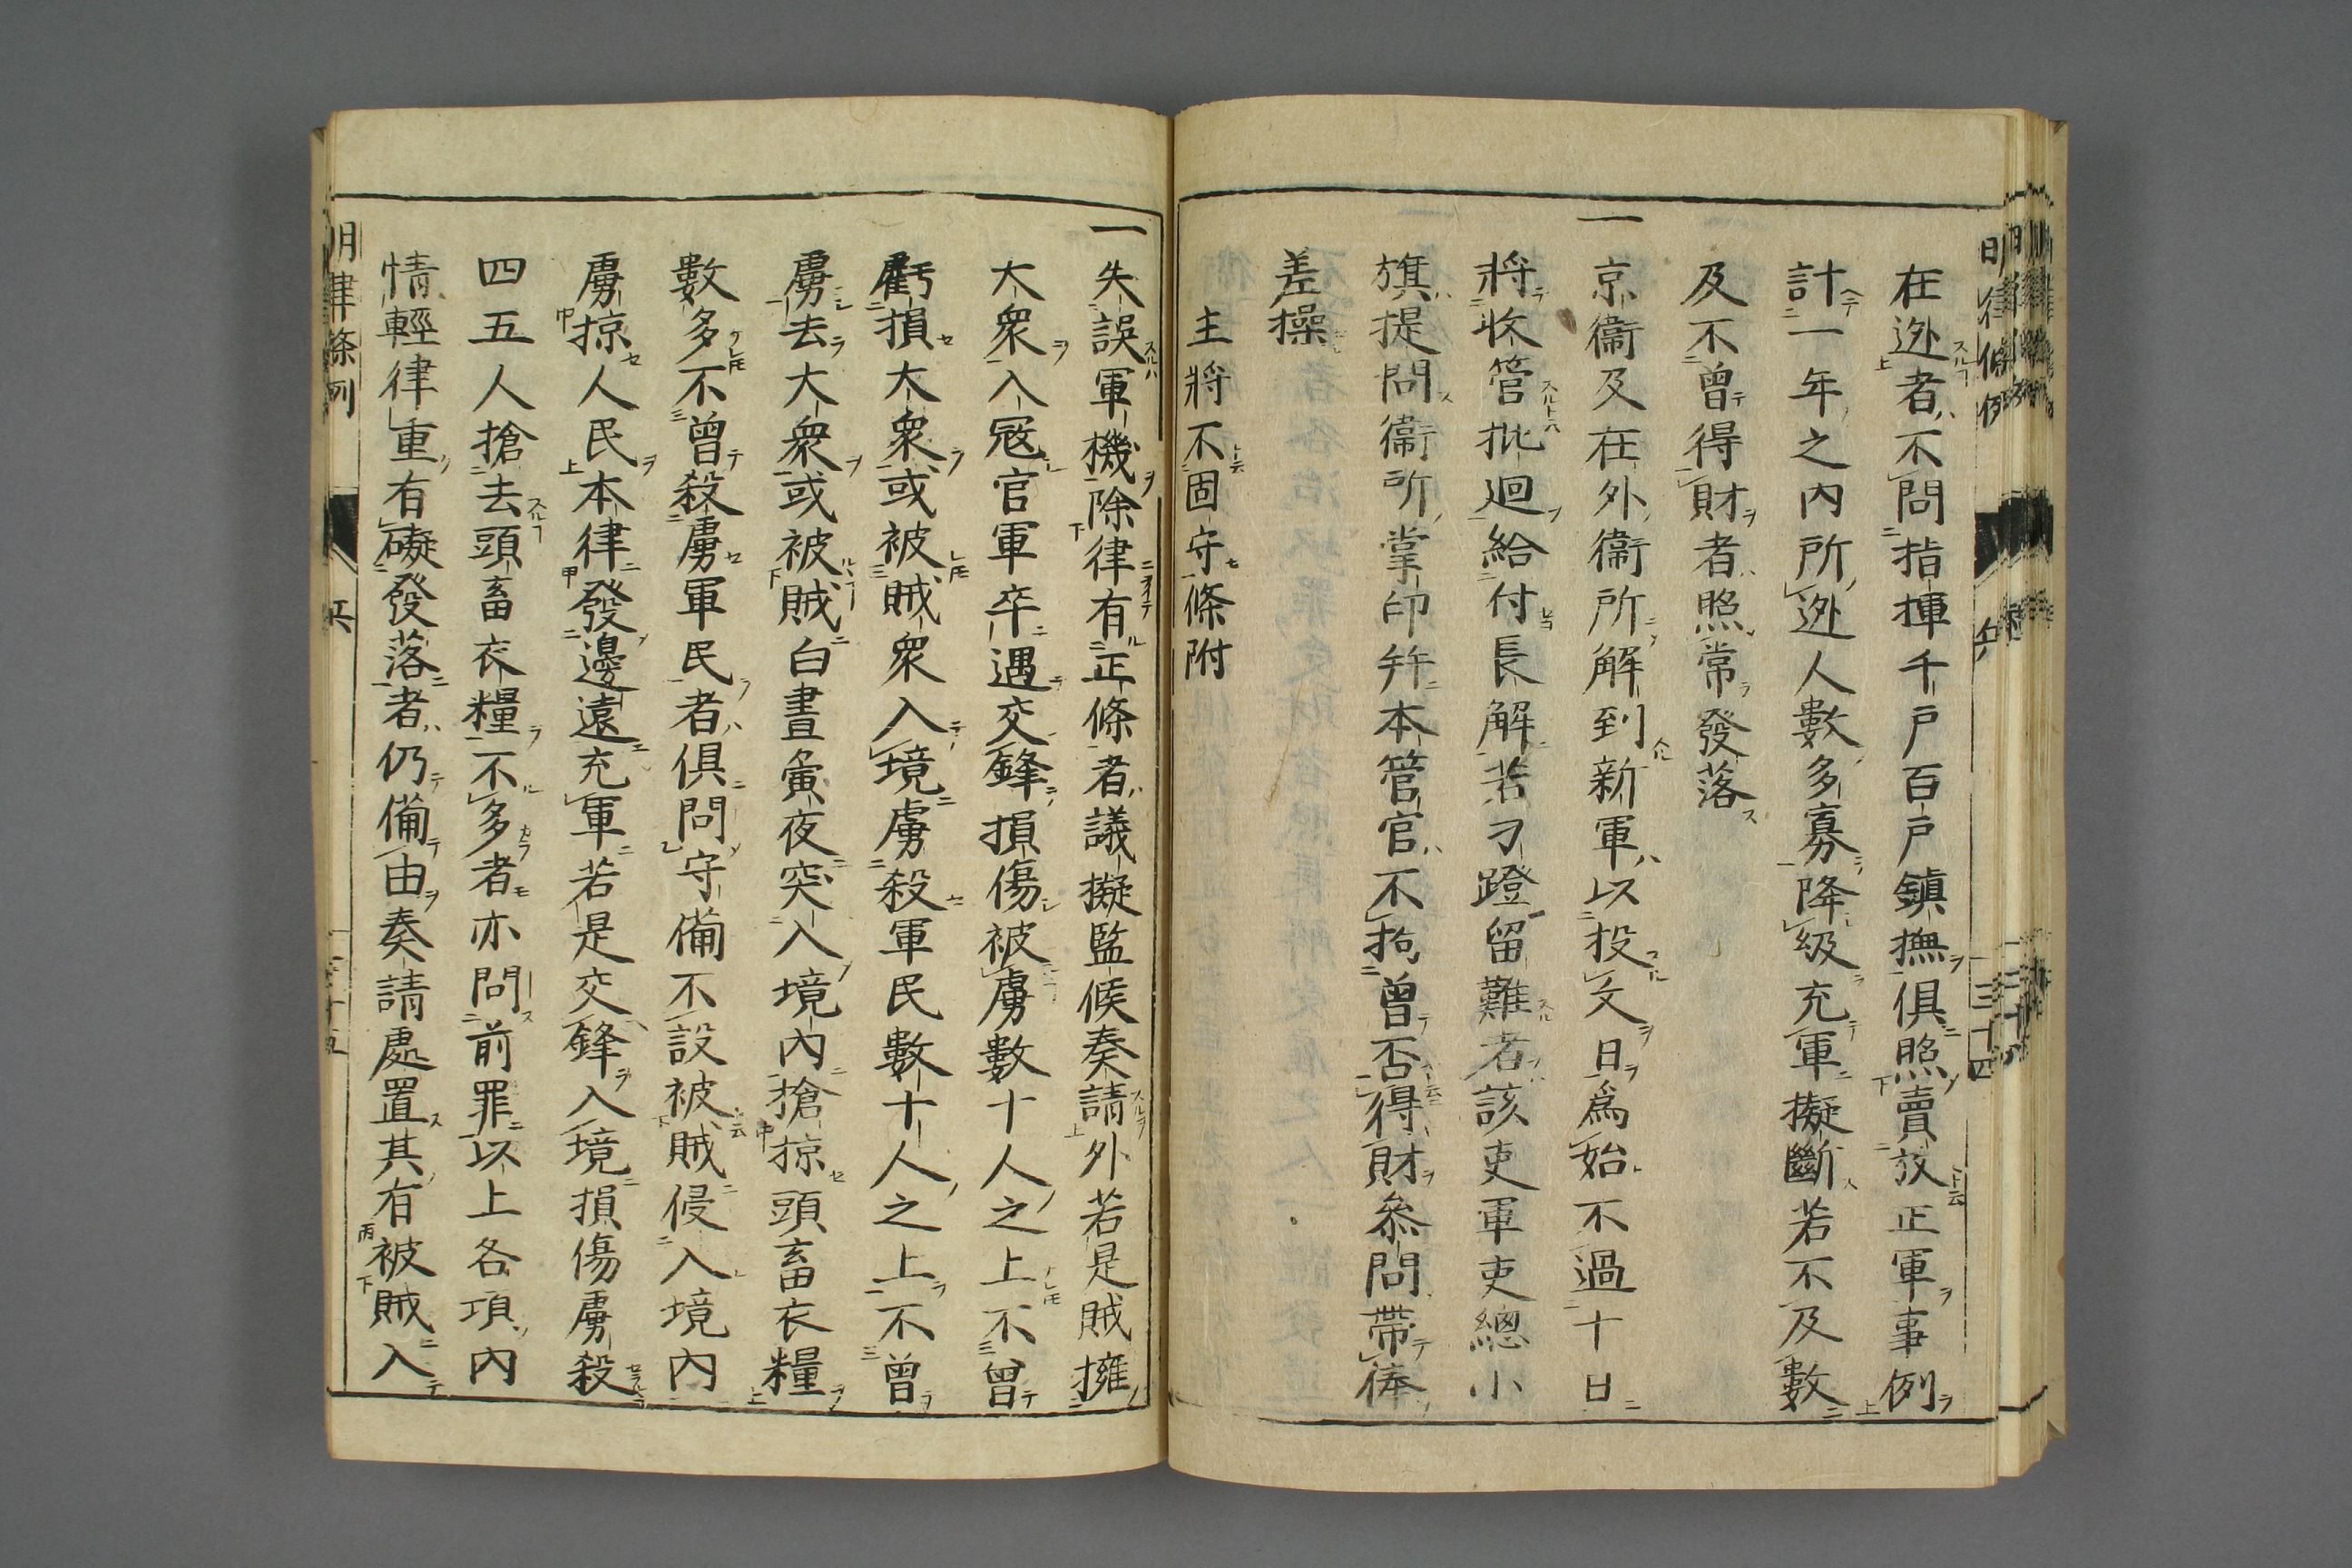 在迯者不問指揮千戸百戸鎮撫俱照賣放正軍事例
計一年之內所迯人數多寡降級充軍擬斷若不及數
及不曾得財者照常發落
一京衞及在外衞所解到新軍以投文日爲始不過十日
將收管批迴給付長解若刁蹬留難者該吏軍吏總小
旗提問衞所掌印幷本管官不拘曾否得財叅問帶俸
差操
主將不固守條附
一失誤軍機除律有正條者議擬監候奏請外若是賊擁
大衆入冦官軍卒遇交鋒損傷被虜數十人之上不曾
虧損大衆或被賊衆入境虜殺軍民數十人之上不曾
虜去大衆或被賊白晝夤夜突入境內搶掠頭畜衣糧
數多不曾殺虜軍民者俱問守備不設被賊侵入境內
虜掠人民本律發邊遠充軍若是交鋒入境損傷虜殺
四五人搶去頭畜衣糧不多者亦問前罪以上各項內
情輕律重有礙發落者仍備由奏請處置其有被賊入
明律條例 兵 三十五